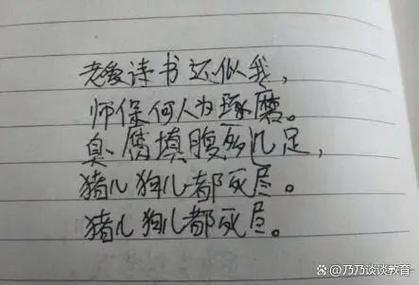 老爱诗书还似我，
师保何人为琢磨。
臭腐填腹多几足，
猪儿狗儿都死尽。
猪儿狗儿都死尽。
@乃乃谈谈教育